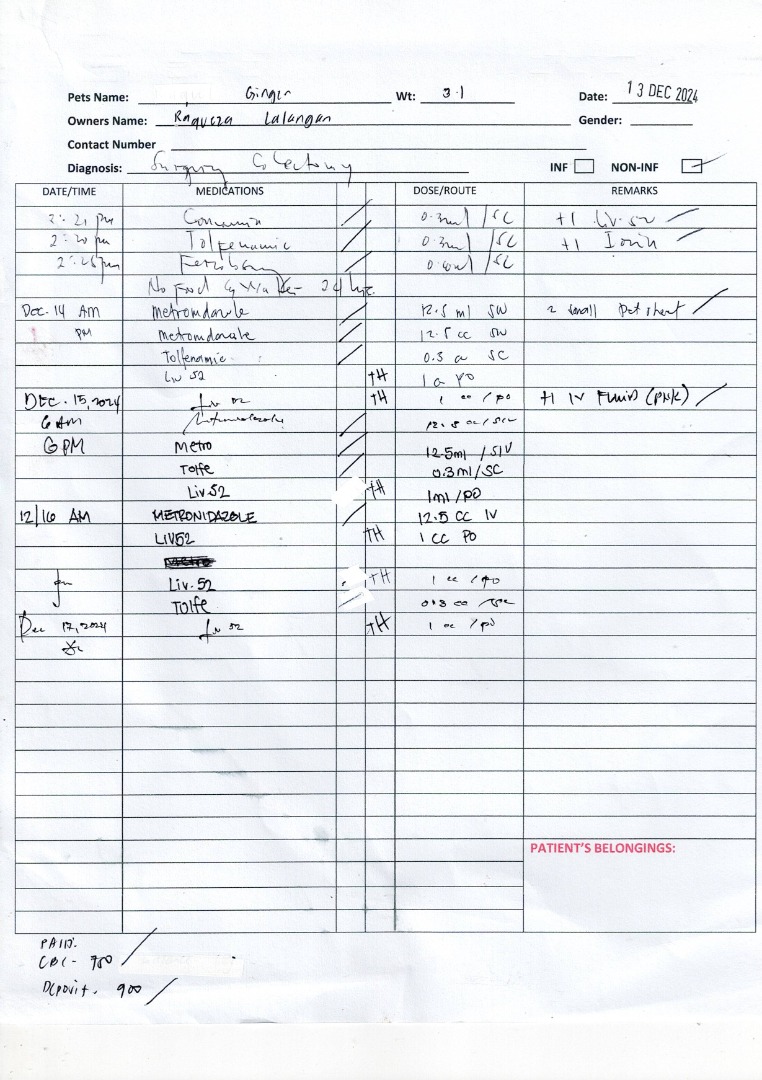 Pets Name: Ginger Wt: 3.1 Date: 13 DEC 2024
Owners Name: Lalangan Gender:
Contact Number
Diagnosis: Surgery INF NON-INF
DATE/TIME MEDICATIONS DOSE/ROUTE REMARKS
2:21 pm 0.3ml /SC +1 Liv.52
2:20 pm Tolfenamic 0.3ml /SC +1
2:25pm /SC
No Food 24 hrs
Dec. 14 AM 12.5 ml 2 small Pet sheet
PM 12.5 cc
Tolfenamic 0.3 SC
Liv 52 TH 1 PO
DEC. 15, 2024 Liv 52 TH 1 cc / po +1 IV FLUID (PINK)
6 AM 12.5 cc/
6 PM Metro 12.5ml /SIV
Tolfe 0.3ml/SC
Liv.52 TH 1ml/PO
12/16 AM METRONIDAZOLE 12.5 CC IV
LIV52 TH 1 CC PO
Metro
pm Liv.52 TH 1 cc /po
Tolfe 0.3 cc
Dec 17, 2024 Liv 52 TH 1 cc /po
PATIENT'S BELONGINGS:
PAID.
CBC - 750
Deposit. 900